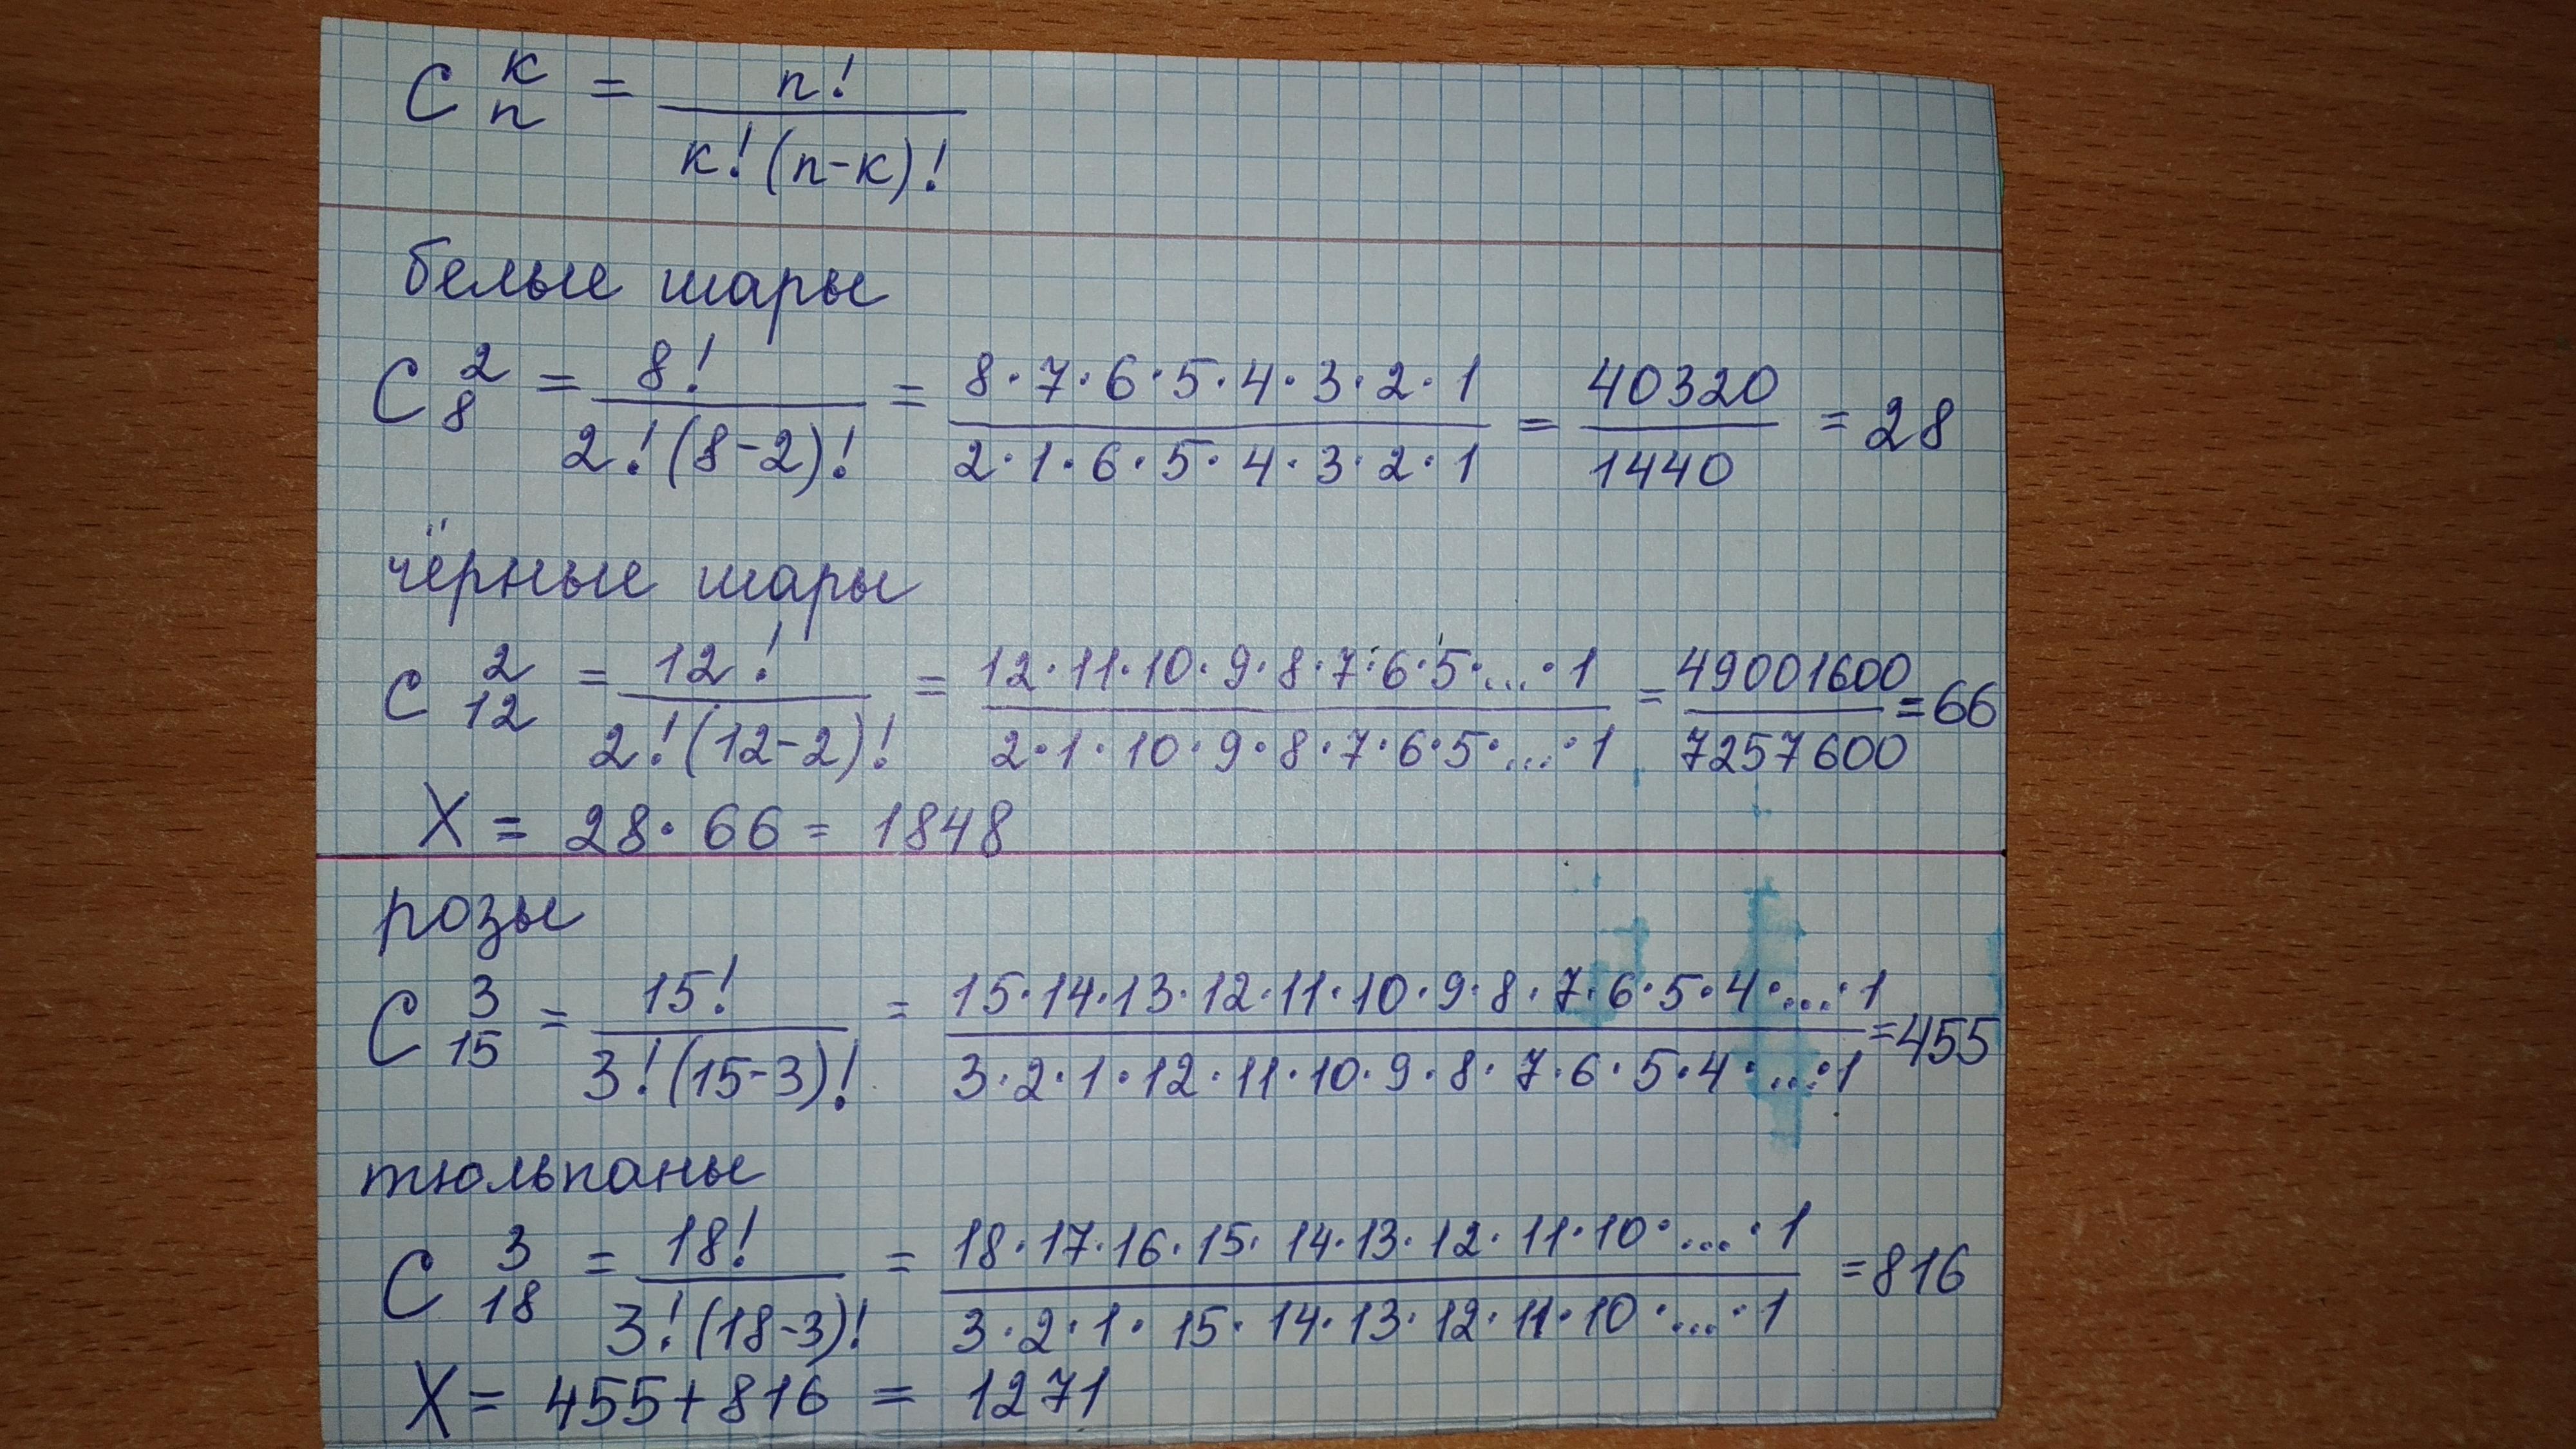 C_n^к = n! / к!(n-к)!
белые шары
C_8^2 = 8! / 2!(8-2)! = 8·7·6·5·4·3·2·1 / 2·1·6·5·4·3·2·1 = 40320 / 1440 = 28
чёрные шары
C_12^2 = 12! / 2!(12-2)! = 12·11·10·9·8·7·6·5·...·1 / 2·1·10·9·8·7·6·5·...·1 = 49001600 / 7257600 = 66
X = 28·66 = 1848
розы
C_15^3 = 15! / 3!(15-3)! = 15·14·13·12·11·10·9·8·7·6·5·4·...·1 / 3·2·1·12·11·10·9·8·7·6·5·4·...·1 = 455
тюльпаны
C_18^3 = 18! / 3!(18-3)! = 18·17·16·15·14·13·12·11·10·...·1 / 3·2·1·15·14·13·12·11·10·...·1 = 816
X = 455+816 = 1271